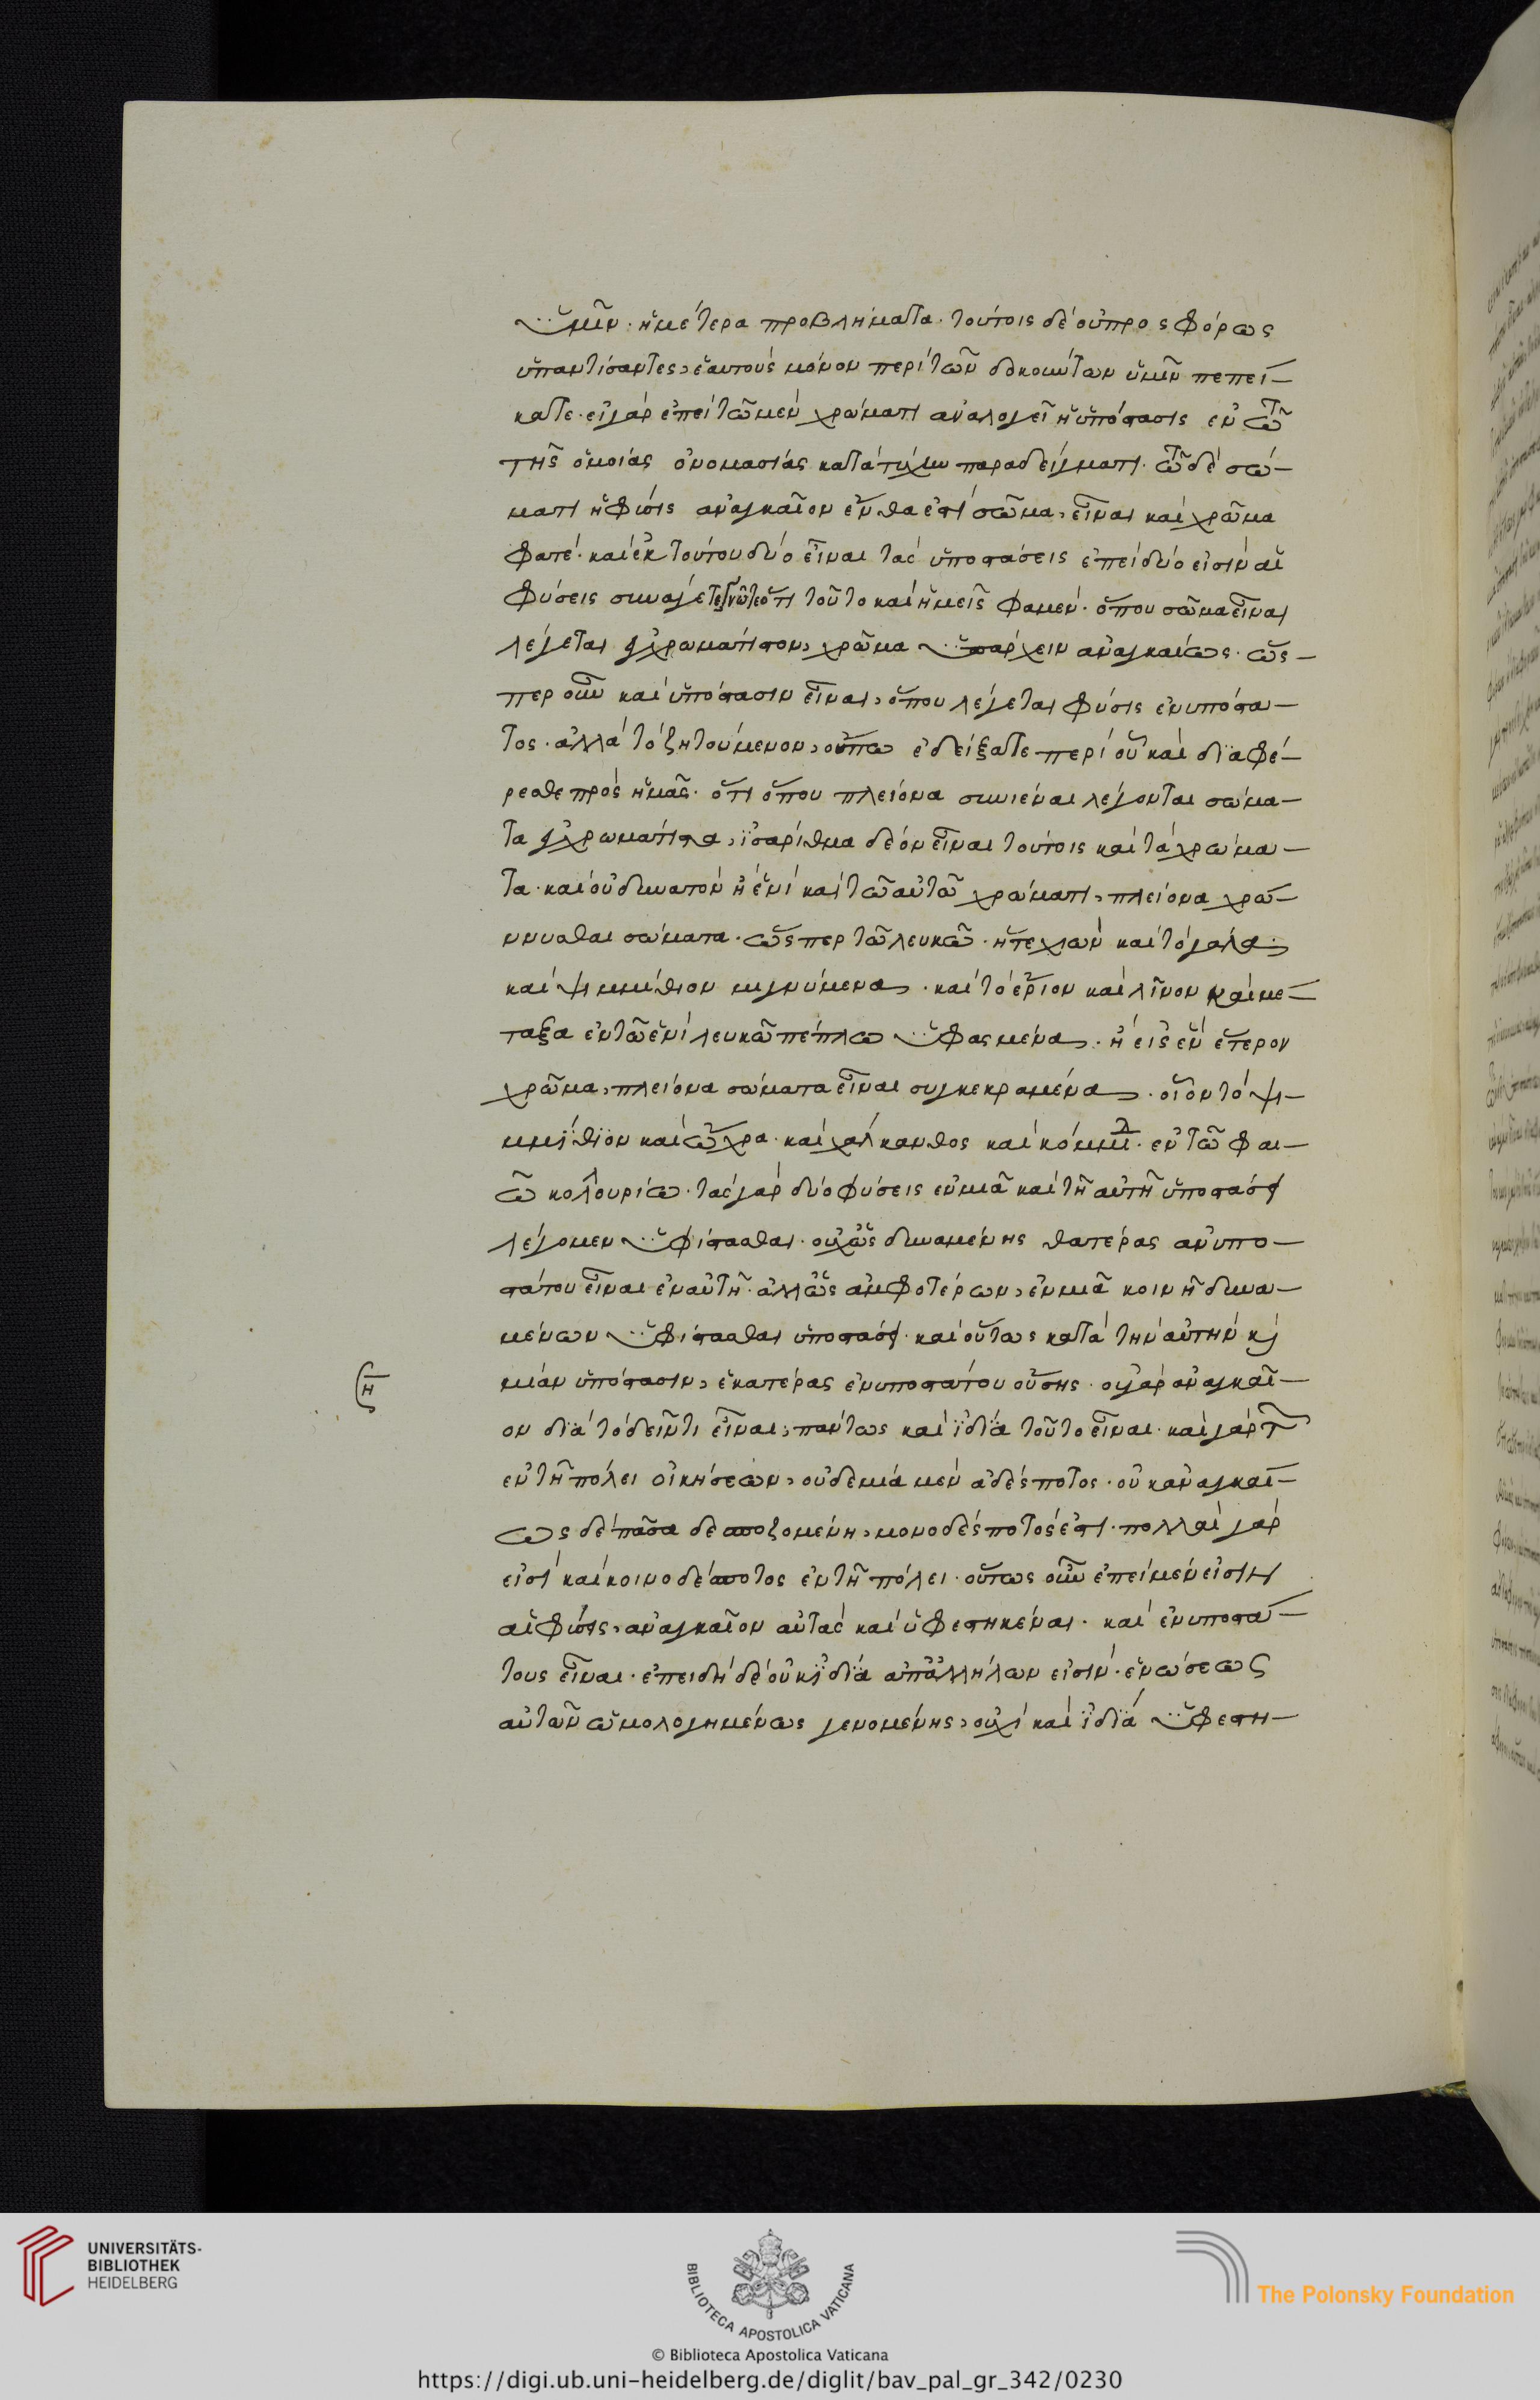 ὑμῖν. ἡμέτερα προβλήματα. τούτοις δὲ οὐ προσφόρως
ὑπαντίσαντες, ἑαυτοὺς μόνον περὶ τῶν δοκούντων ὑμῖν πεπεί-
κατε. εἰ γὰρ ἐπεὶ τῶ μὲν χρώματι ἀναλογεῖ ἡ ὑπόστασις ἐν τῶ
τῆς ὁμοίας ὀνομασίας κατὰ τέχνην παραδείγματι. τῶ δὲ σώ-
ματι ἡ φύσις ἀναγκαῖον ἔνθα ἐστὶ σῶμα, εἶναι καὶ χρῶμα
φατέ. καὶ ἐκ τούτου δύο εἶναι τὰς ὑποστάσεις ἐπεὶ δύο εἰσὶν αἱ
φύσεις συνάγετε, γνῶτε ὅτι τοῦτο καὶ ἡμεῖς φαμέν. ὅπου σῶμα εἶναι
λέγεται ἐγχρωμάτιστον, χρῶμα ὑπάρχειν ἀναγκαίως. ὥσ-
περ οὖν καὶ ὑπόστασιν εἶναι, ὅπου λέγεται φύσις ἐνυπόστα-
τος. ἀλλὰ τὸ ζητούμενον, οὔπω ἐδείξατε περὶ οὗ καὶ διαφέ-
ρεσθε πρὸς ἡμᾶς. ὅτι ὅπου πλείονα συνιέναι λέγονται σώμα-
τα ἐγχρωμάτιστα, ἰσάριθμα δέον εἶναι τούτοις καὶ τὰ χρώμα-
τα. καὶ οὐ δυνατὸν ἢ ἑνὶ καὶ τῶ αὐτῶ χρώματι, πλείονα χρώ-
ννυσθαι σώματα. ὥσπερ τῶ λευκῶ. ἥτε χιὼν καὶ τὸ γάλα
καὶ ψιμμίθιον μιγνύμενα. καὶ τὸ ἔριον καὶ λῖνον καὶ με-
ταξα ἐν τῶ ἑνὶ λευκῶ πέπλω ὑφασμένα. ἢ εἰς ἓν ἕτερον
χρῶμα, πλείονα σώματα εἶναι συγκεκραμένα. οἷον τὸ ψι-
μμίθιον καὶ ὤχρα. καὶ χάλκανθος καὶ κόμμι. ἐν τῶ φαι-
ῶ κολλουρίω. τὰς γὰρ δύο φύσεις ἐν μιᾶ καὶ τῆ αὐτῆ ὑποστάσει
λέγομεν ὑφίστασθαι. οὐχ ὡς δυναμένης θατέρας ἀνυπο-
στάτου εἶναι ἐν αὐτῆ. ἀλλ' ὡς ἀμφοτέρων, ἐν μιᾶ κοινῆ δυνα-
μένων ὑφίστασθαι ὑποστάσει. καὶ οὕτως κατὰ τὴν αὐτὴν καὶ
μίαν ὑπόστασιν, ἑκατέρας ἐνυποστάτου οὔσης. οὐ γὰρ ἀναγκαῖ-
η
ον διὰ τὸ δεῖν τι εἶναι, πάντως καὶ ἰδία τοῦτο εἶναι. καὶ γὰρ τῶν
ἐν τῆ πόλει οἰκήσεων, οὐδεμία μὲν ἀδέσποτος. οὐκ ἀναγκαί-
ως δὲ πᾶσα δεσποζομένη, μονοδέσποτός ἐστι. πολλαὶ γὰρ
εἰσὶ καὶ κοινοδέσποτος ἐν τῆ πόλει. οὕτως οὖν ἐπεὶ μὲν εἰσὶν
αἱ φύσεις, ἀναγκαῖον αὐτὰς καὶ ὑφεστηκέναι. καὶ ἐνυποστά-
τους εἶναι. ἐπειδὴ δὲ οὐ κἰδία ἀπ' ἀλλήλων εἰσίν. ἑνώσεως
αὐτῶν ὡμολογημένως γενομένης, οὐχὶ καὶ ἰδία ὑφεστη-
UNIVERSITÄTS-
BIBLIOTHEK
HEIDELBERG
BIBLIOTECA APOSTOLICA VATICANA
The Polonsky Foundation
© Biblioteca Apostolica Vaticana
https://digi.ub.uni-heidelberg.de/diglit/bav_pal_gr_342/0230